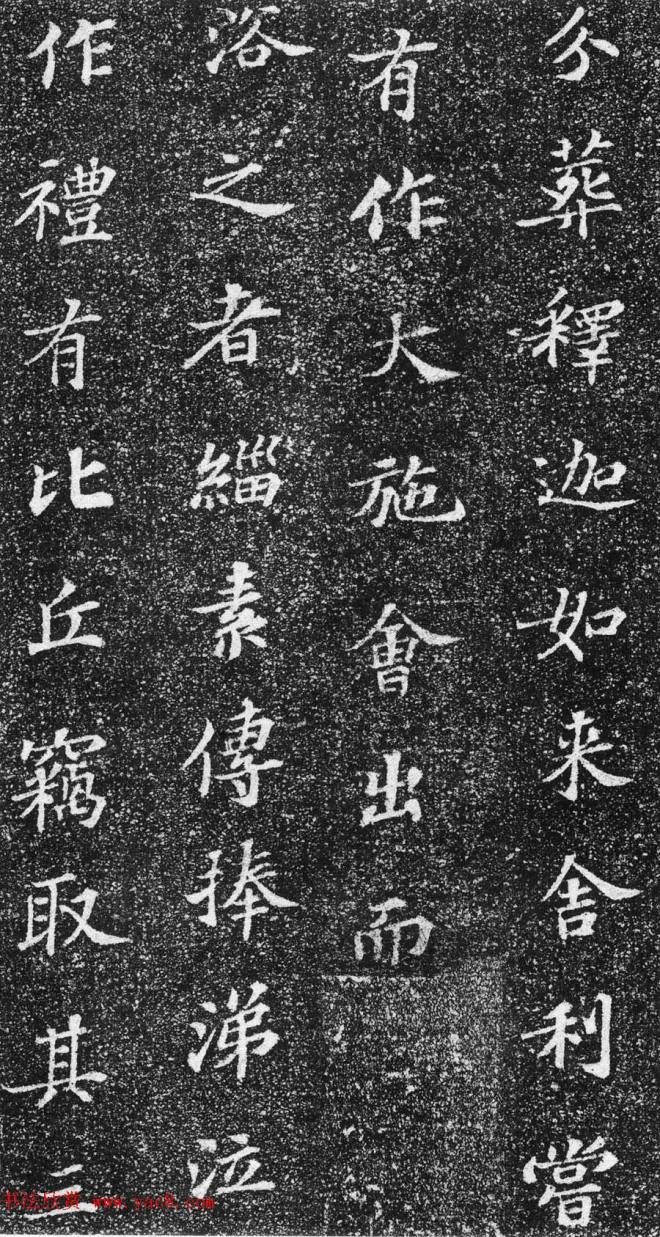 分葬釋迦如来舎利嘗
有作大施會出而
浴之者緇素傳捧涕泣
作禮有比丘竊取其三
书法欣赏 www.yac8.com